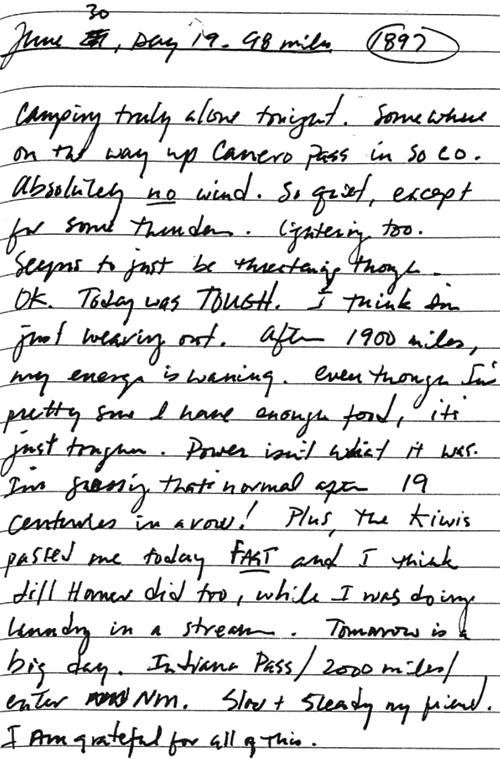 30
June, Day 19. 98 miles 1897
Camping truly alone tonight. Somewhere
on the way up Carnero Pass in So CO.
Absolutely no wind. So quiet, except
for some thunder. Lightening too.
Seems to just be threatening though.
OK. Today was TOUGH. I think I'm
just wearing out. After 1900 miles,
my energy is waning. Even though I'm
pretty sure I have enough food, it's
just tougher. Power isn't what it was.
I'm guessing that's normal after 19
centuries in a row! Plus, the Kiwis
passed me today FAST and I think
Jill Homer did too, while I was doing
laundry in a stream. Tomorrow is a
big day. Indiana Pass/2000 miles/
enter NM. Slow + Steady my friend.
I Am grateful for all of this.